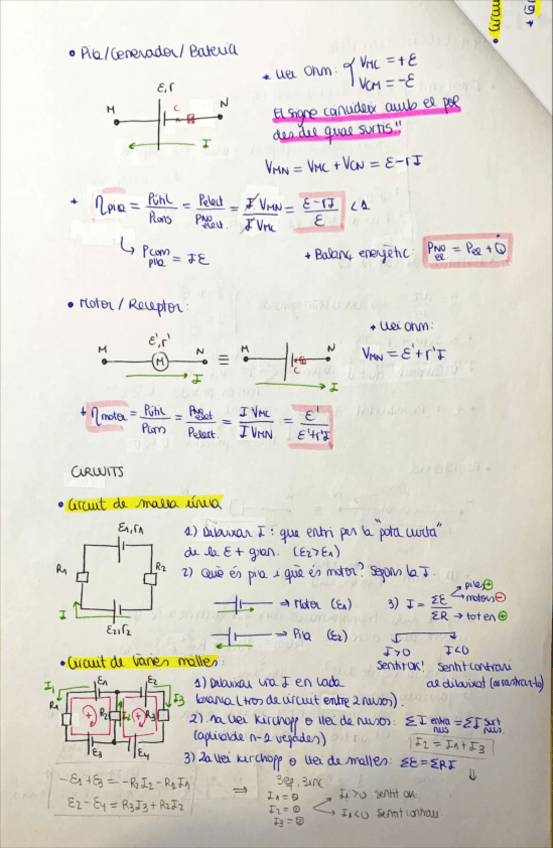 • Pila/Generador/Bateria
* Llei Ohm: { VMC = +ε
VCM = −ε
ε, r
M
C
N
I
El signe coincideix amb el pol
des del qual surtis"
VMN = VMC + VCN = ε − rI
* ηpila = Pútil / Pcons = Pelect / PNO elect. = I VMN / I VMC = ε − rI / ε < 1
↳ Pcom pila = Iε
* Balanç energètic: PNO el = Pel + Q̇
• Motor / Receptor:
* Llei Ohm:
ε', r'
M
M
N
≡
M
C
N
I
I
VMN = ε' + r'I
* ηmotor = Pútil / Pcons = PNO elect / Pelect. = I VMC / I VMN = ε' / ε' + r'I
CIRCUITS
• Circuit de malla única
ε1, r1
R1
R2
I
ε2, r2
1) Dibuixar I: que entri per la "pota curta"
de la ε + gran. (ε2 > ε1)
2) Què és pila i què és motor? Segons la I.
→ Motor (ε1)
→ Pila (ε2)
3) I = Σε / ΣR
→ piles ⊕
→ motors ⊖
→ tot en ⊕
I > 0
I < 0
Sentit ok!
Sentit contrari
al dibuixat
• Circuit de vàries malles:
I1
ε1
ε2
I3
R1
R2
I2
R3
ε3
ε4
1) Dibuixar una I en cada
branca (tros de circuit entre 2 nusos).
2) 1a llei Kirchoff o llei de nusos: ΣI entra nus = ΣI surt nus.
(aplicable n−1 vegades)
I2 = I1 + I3
3) 2a llei Kirchoff o llei de malles: Σε = ΣRI
−ε1 + ε3 = −R2I2 − R1I1
ε2 − ε4 = R3I3 + R2I2
⇒
3eq, 3inc
I1 =
I2 =
I3 =
I1 > 0 sentit ok
I1 < 0 sentit contrari
• Circuit